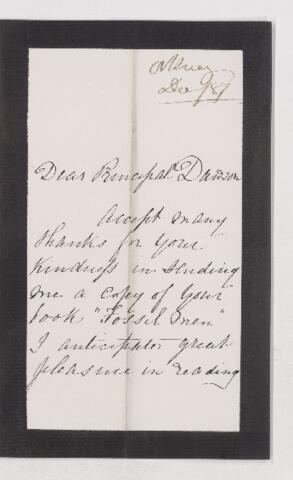 Dec /87
Dear Principal Dawson
Accept many
thanks for your
kindness in sending
me a copy of your
book "Fossil men"
I anticipate great
pleasure in reading